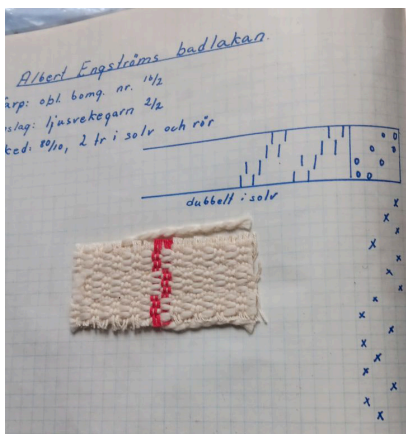 Albert Engströms badlakan.
arp: obl. bomg. nr. 16/2
slag: ljusvekegarn 2/2
ked: 80/10, 2 tr i solv och rör
dubbelt i solv